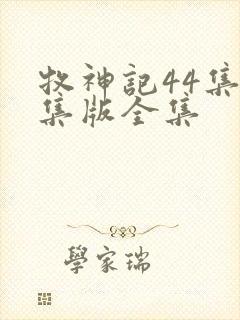 牧神記44集
集版全集
學家瑞